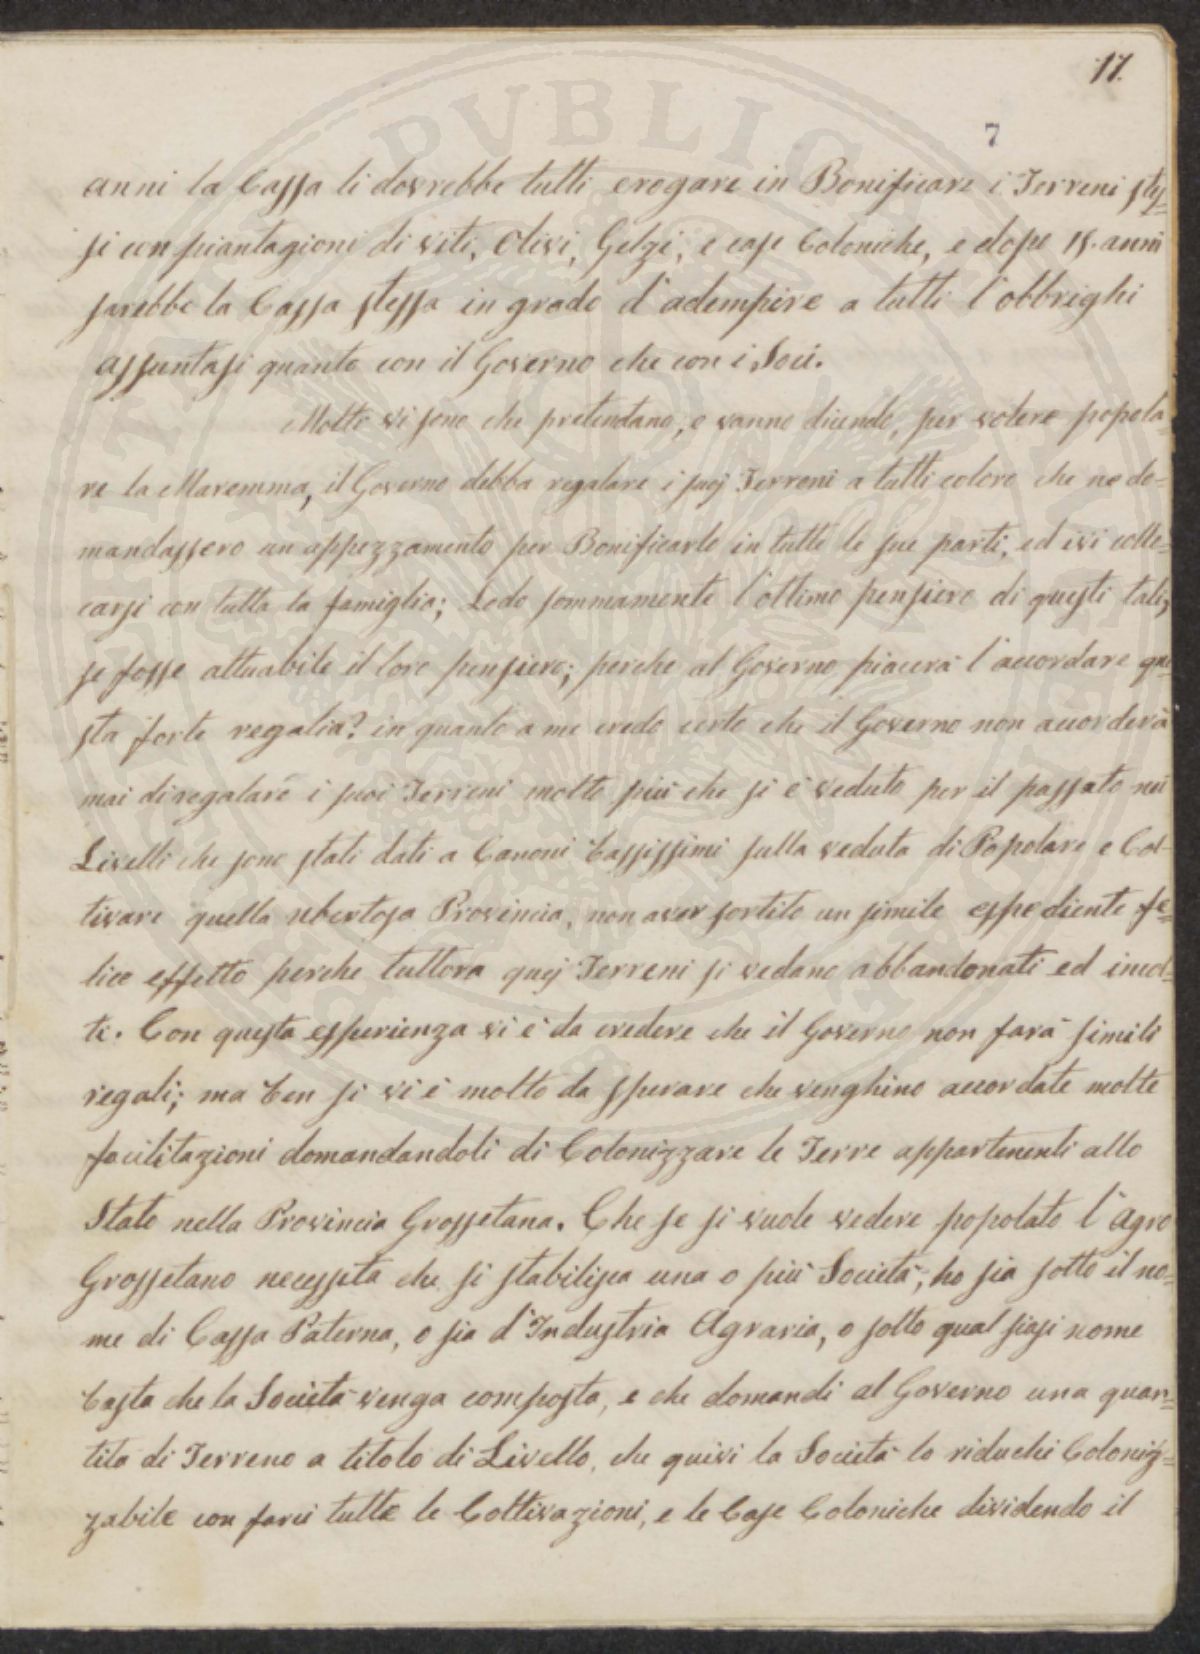 17.
7
anni la Cassa li dovrebbe tutti erogare in Bonificare i Terreni stes=
si con piantagioni di viti, Olivi, Gelzi, e case Coloniche, e dopo 15. anni
sarebbe la Cassa stessa in grado d'adempire a tutti l'obbrighi
assuntasi quanto con il Governo che con i Soci.
Molti vi sono che pretendano, e vanno dicendo, per volere popola=
re la Maremma, il Governo debba regalare i suoj Terreni a tutti coloro che ne do=
mandassero un appezzamento per Bonificarlo in tutte le sue parti, ed ivi collo=
carsi con tutta la famiglia; Lodo sommamente l'ottimo pensiero di questi tali,
se fosse attuabile il loro pensiero; perche al Governo piacerà l'accordare que=
sta forte regalia? in quanto a me credo certo che il Governo non accorderà
mai di regalare i suoi Terreni molto più che si è veduto per il passato nei
Livelli che sono stati dati a Canoni bassissimi sulla veduta di Popolare e Col-
tivare quella ubertosa Provincia, non aver sortito un simile espediente fe=
lice effetto perche tuttora quej Terreni si vedano abbandonati ed incol=
ti. Con questa esperienza vi è da credere che il Governo non farà simili
regali; ma ben si vi è molto da sperare che venghino accordate molte
facilitazioni domandandoli di Colonizzare le Terre appartenenti allo
Stato nella Provincia Grossetana. Che se si vuole vedere popolato l'Agro
Grossetano necessita che si stabilisca una o più Società, ho sia sotto il no=
me di Cassa Paterna, o sia d'Industria Agraria, o sotto qual siasi nome
basta che la Società venga composta, e che domandi al Governo una quan=
tità di Terreno a titolo di Livello, che quivi la Società lo riduchi Coloniz=
zabile con farci tutte le Coltivazioni, e le Case Coloniche dividendo il
PVBLIC